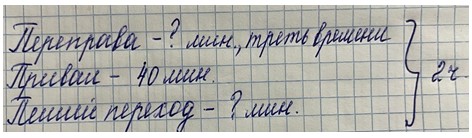 Переправа - ? мин., треть времени
Привал - 40 мин.
Пеший переход - ? мин.
2 ч